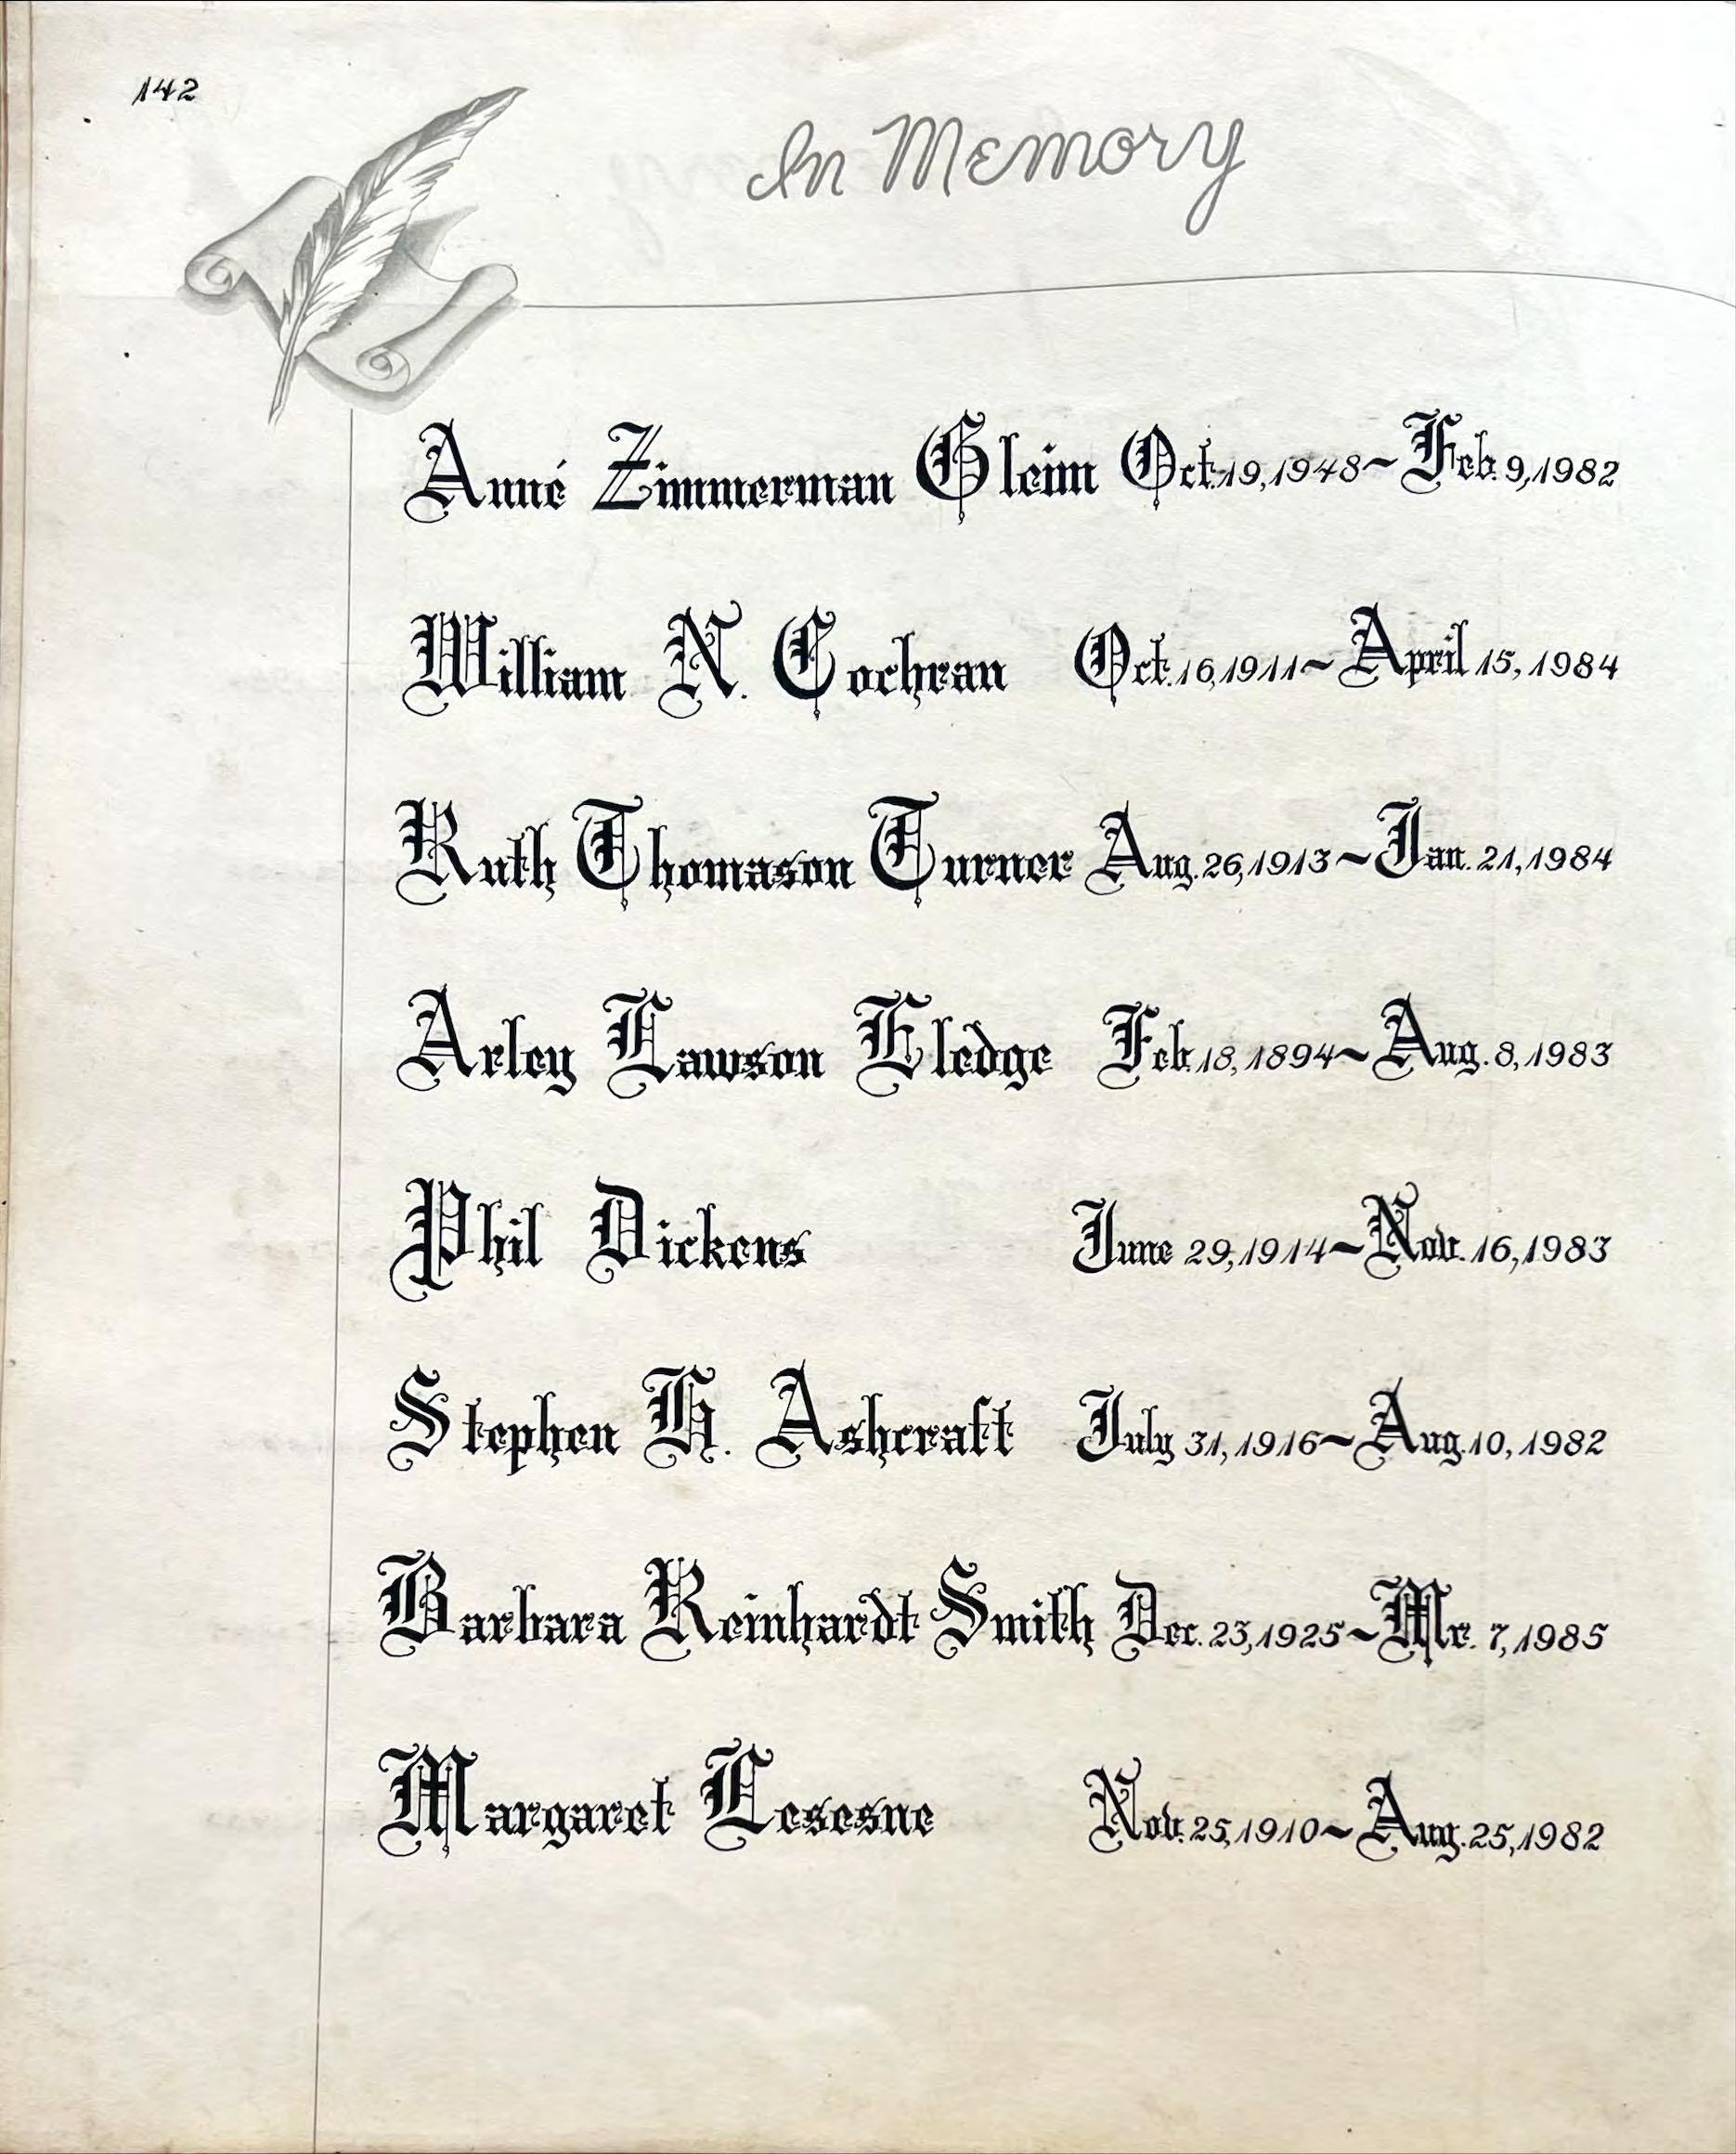 142
In Memory
Anné Zimmerman Gleim Oct. 19, 1948~Feb. 9, 1982
William N. Cochran Oct. 16, 1911~April 15, 1984
Ruth Thomason Turner Aug. 26, 1913~Jan. 21, 1984
Arley Lawson Eledge Feb. 18, 1894~Aug. 8, 1983
Phil Dickens June 29, 1914~Nov. 16, 1983
Stephen H. Ashcraft July 31, 1916~Aug. 10, 1982
Barbara Reinhardt Smith Dec. 23, 1925~Mr. 7, 1985
Margaret Lesesne Nov. 25, 1910~Aug. 25, 1982